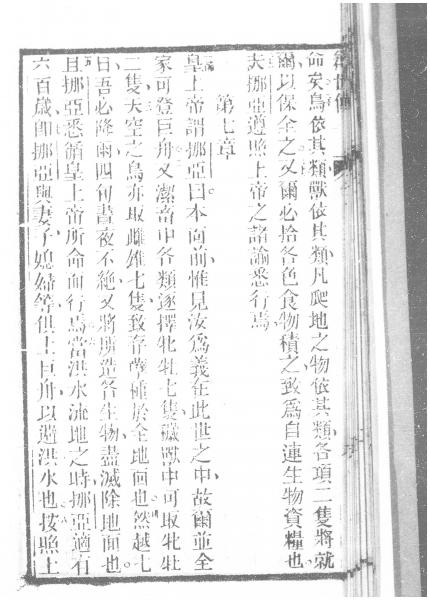 命矣鳥依其類獸依其類凡爬地之物依其類各項二隻將就
爾以保全之又爾必拾各色食物積之致爲自連生物資糧也
夫挪亞遵照上帝之諸諭悉行焉
第七章
皇上帝謂挪亞曰本面前惟見汝爲義在此世之中故爾並全
家可登巨舟又潔畜中各類逐擇牝牡七隻穢獸中可取牝牡
二隻天空之鳥亦取雌雄七隻致存種於全地面也然越七
日吾必降雨四旬晝夜不絕又將所造各生物盡滅除地面也
且挪亞悉循皇上帝所命而行焉當洪水流地之時挪亞適有
六百歲卽挪亞與妻子媳婦等俱上巨舟以避洪水也按照上